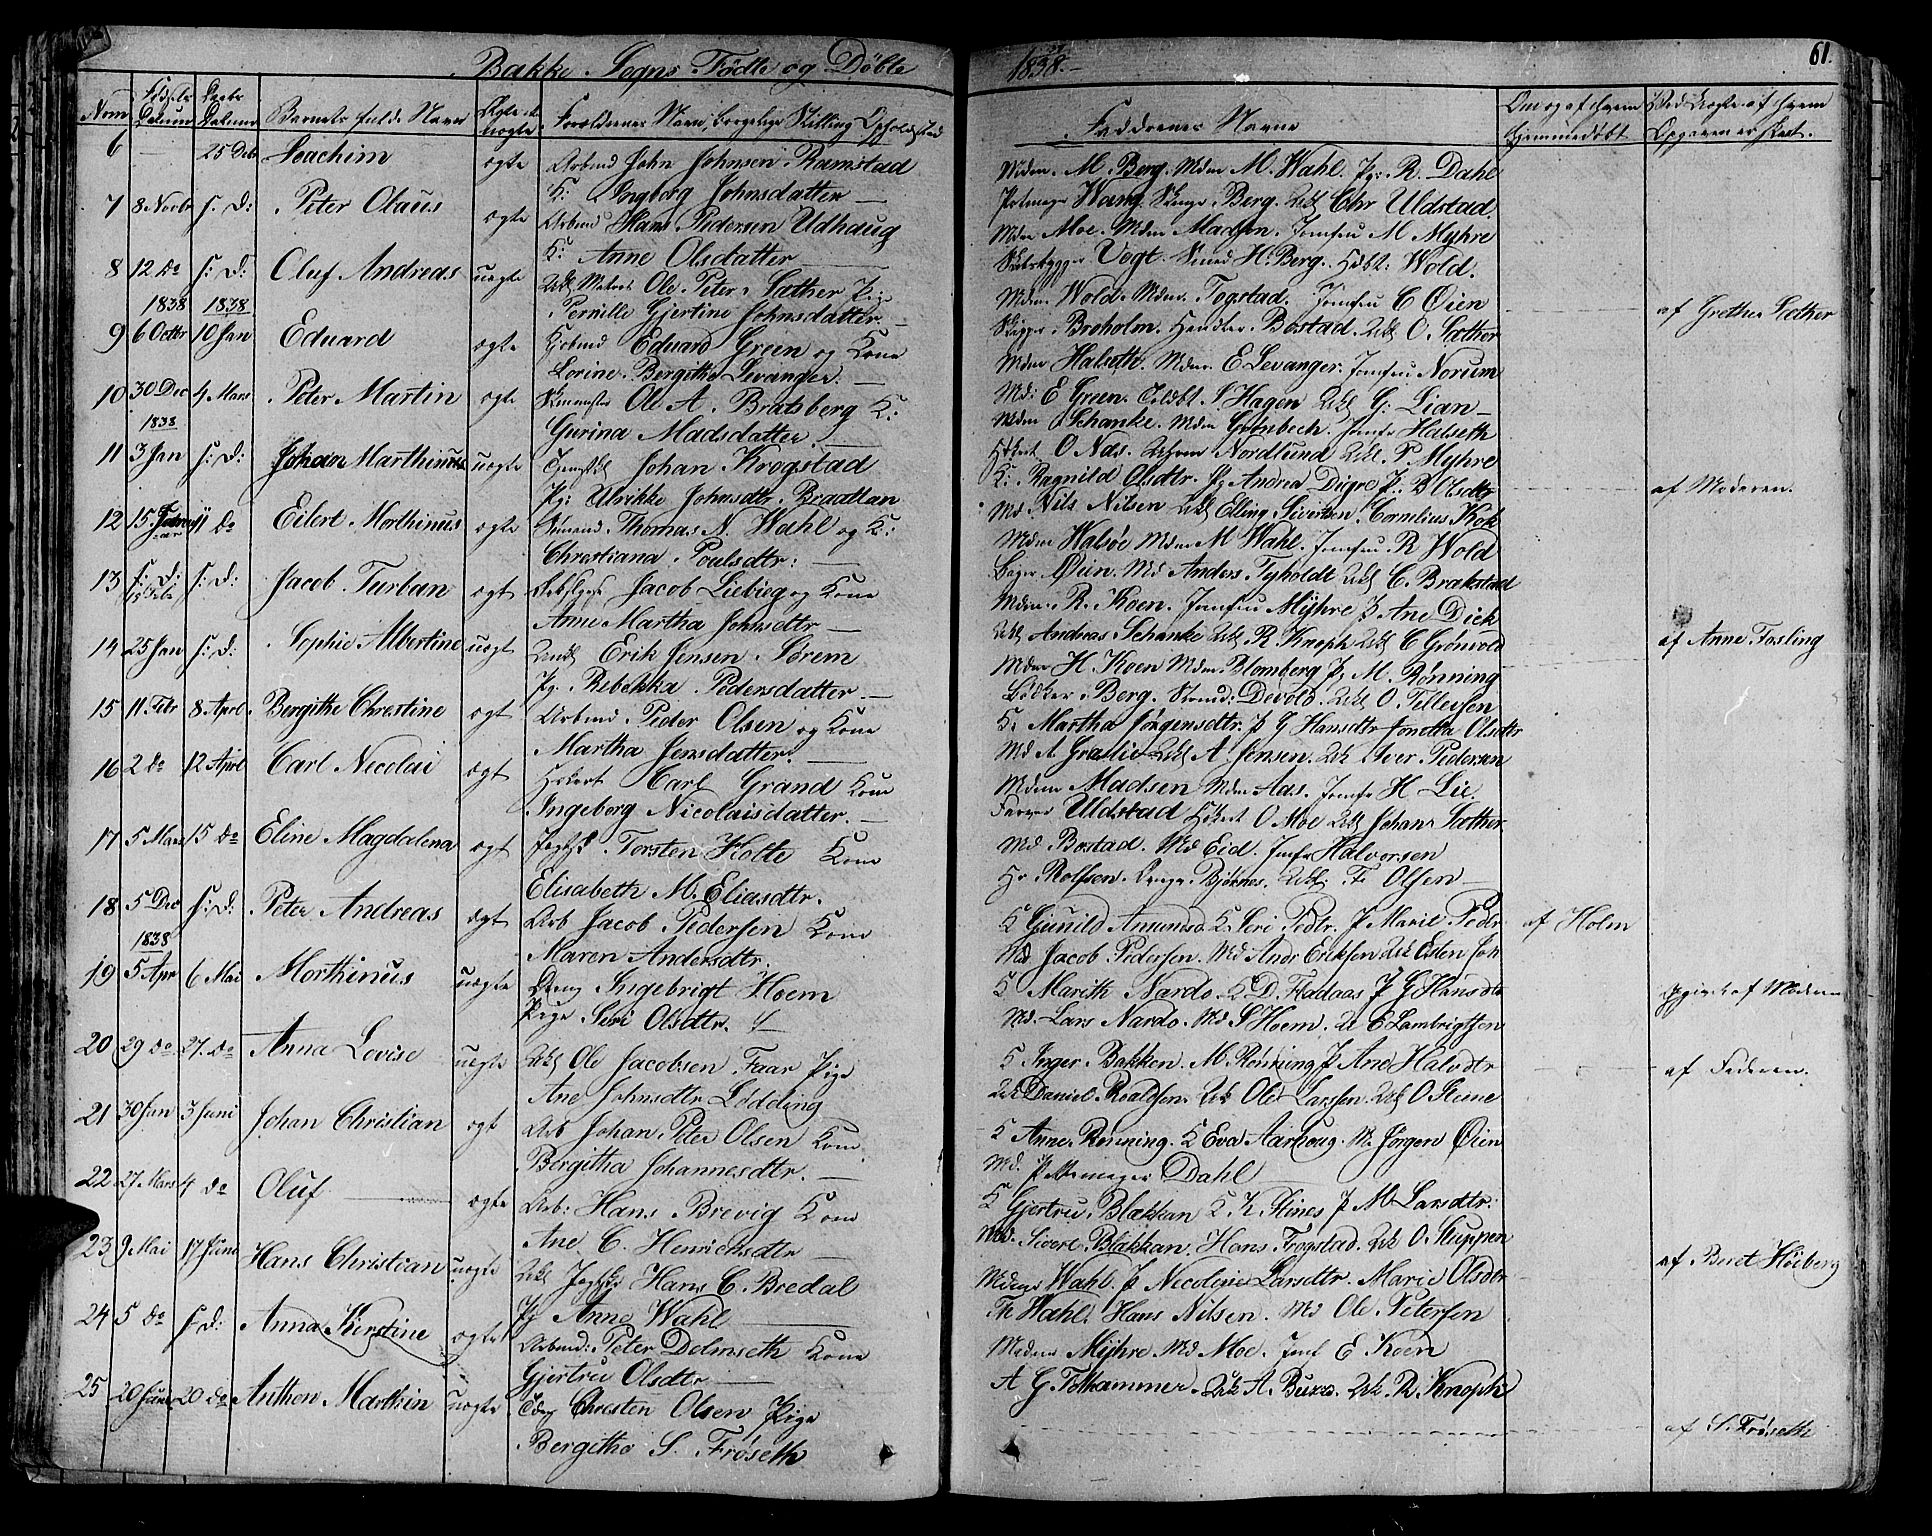 Bakke Sogns Fødte og Døbte
1838.
61.
Num Fødsels Datum Daabs Datum Barnets fulde Navn Ægte el. uægte Forældrenes Navn, borgelige Stilling, Opholdsted
Faddrenes Navne
Om og af hvem hjemmedøbt
Ved Uægte af hvem Opgaven er skeet.
6 — 25 Deb Joachim ægte Arbmd John Johnsen Ramstad
K: Ingborg Johnsdatter —
Mdm. M. Berg. Mdm M. Wahl. Pg: R. Dahl
Wang. Berg. Uk Chr Uldstad.
7 8 Novbr s. D: Peter Olaus ægte Arbmd Hans Pedersen Udhaug
K: Anne Olsdatter —
Mdm Moe. Mdm Madsen. Jomfru M Myhre
Vogt. Smed H. Berg. Wold.
8 12 Do s: D: Oluf Andreas uægte Uk Matros Ole Peter Sæther Pige
Pernille Gjertine Johnsdatter. —
Mdm. Wold. Mdm. Togstad. Jomfru C Øien
Skipper Broholm. Handler Bostad. Uk O Sæther
af Grethe Sæther
1838 1838
9 6 Octbr 10 Jan Eduard ægte Eduard Green og Kone
Lorine Bergithe Levanger. —
Mdm Halseth. Mdm. E Levanger. Jomfru Norum
Md: E Green. S Hagen Uk G: Lian —
10 30 Dec 4 Mars Peter Martin ægte Ole A. Bratsberg K:
Gurina Madsdatter. —
Mdm O Schanke. Mdm Grønbech. Jomfr Halseth
O Næs. Nordlund Uk. P. Myhre
1838
11 3 Jan s: D: Johan Marthinus uægte Johan Krogstad
Pg: Ulrikke Johnsdtr. Braatlan
K: Ragnild Olsdtr. Pg Andrea Digre P. B Olsdtr
Md Nils Nilsen Uk Elling Sivertsen. Cornelius Kok
af Moderen.
12 15. 11 do Eilert Morthinus ægte Thomas N. Wahl og K:
Christiana Poulsdtr: —
Mdm Halsøe Mdm M Wahl. Jomfru R Wold
Bager Øien. Md Anders Tyholdt Uk C. Brækstad
13 s: D: s: D: Jacob Turban ægt Jacob Liebieg og Kone
Ane Martha Johnsdtr —
Mdm. R. Koen. Jomfru Myhre P Ane Dick
Uk Andreas Schanke Uk R Knoph Uk C Grønvold
14 25 Jan s: D: Sophie Albertine uægt Erik Jensen Sørem
Pg. Rebekka Pedersdatter. —
Mdm H. Koen Mdm Blomberg P. M. Rønning
Bødker Berg. Devold. Uk O. Tillersen
af Anne Fosling
15 11 Febr 8 April Bergithe Christine ægt Arbmd Peder Olsen og Kone
Martha Jensdatter. —
K: Martha Jørgensdtr. P G Hansdtr Jonetta Olsdtr
Md A Græslie Uk A. Jensen. Uk Iver Pedersen
16 2 do 12 April Carl Nicolai ægt Hokert Carl Grand Kone
Ingeborg Nicolaisdatter. —
Mdm Madsen Mdm Aas. Jomfr H Lie.
Farver Uldstad Hokert O Moe Uk Johan Sæther
17 5 Mars 15 do Eline Magdalena ægt Torsten Holte Kone
Elisabeth M. Eliasdtr.
Md Bostad. Md Eid. Jmfr Halvorsen
Hr Rolfsen. Bjørnes. Uk. Fr Olsen —
18 5 Dec s: D: Peter Andreas ægt Arb Jacob Pedersen Kone
Maren Andersdtr.
K Gunild Amunds K Seri Pedtr. P Marie Pedtr
Md Jacob Pedersen. Md Andr Eriksen Uk Esten Joh
af Holm
1838
19 5 Apr 6 Mai Morthinus uægte Dreng Ingebrigt Hoem
Pige Seri Olsdtr. —
K Marith Nardo. K D. Fladaas P G Hansdtr
Md. Lars Nardo. Md S Hoem. Uk E Lambrigtsen
af Moderen
20 29 Do 27. Do Anna Lovise uægte Uk Ole Jacobsen Faar Pige
Ane Johnsdtr Lodding —
K Inger Bakken. M. Rønning P Ane Halvdtr
Uk Daniel Roaldsen. Uk Ole Larssen. Uk O. Stene
af Faderen.
21 30 Jan 3 Juni Johan Christian ægt Arb Johan Peter Olsen Kone.
Bergitha Johannesdtr. —
K Anne Rønning. K Eva Aarhoug. M. Jørgen Øien
Md. Dahl —
22 27 Mars 4 do Oluf ægte Arb: Hans Brevig Kone
Ane C. Henrichsdtr —
K Gjertru Blakkan K K. Stines P M. Larsdtr:
Md. Sivert Blakkan. Hans Frogstad. Uk O. Stuppen
23 9 Mai 17 Juni Hans Christian uægte Uk Hans C. Bredal
Pg Anne Wahl —
Wahl. P Nicoline Larsdtr. Marie Olsdtr
Th Wahl. Hans Nilsen. Md Ole Petersen
af Beret Høiberg
24 5 do s D: Anna Kirstine ægte Arbmd: Peter Dolmseth Kone
Gjertru Olsdtr —
Mdm Myhre Md Moe. Jmf E Koen
A G Folkammer. Uk A. Buxo. Uk. R. Knoph
25 20 Juni 20 do Anthon Marthin uægte Chresten Olsen Pige
Bergithe S. Frøseth
af S. Frøseth